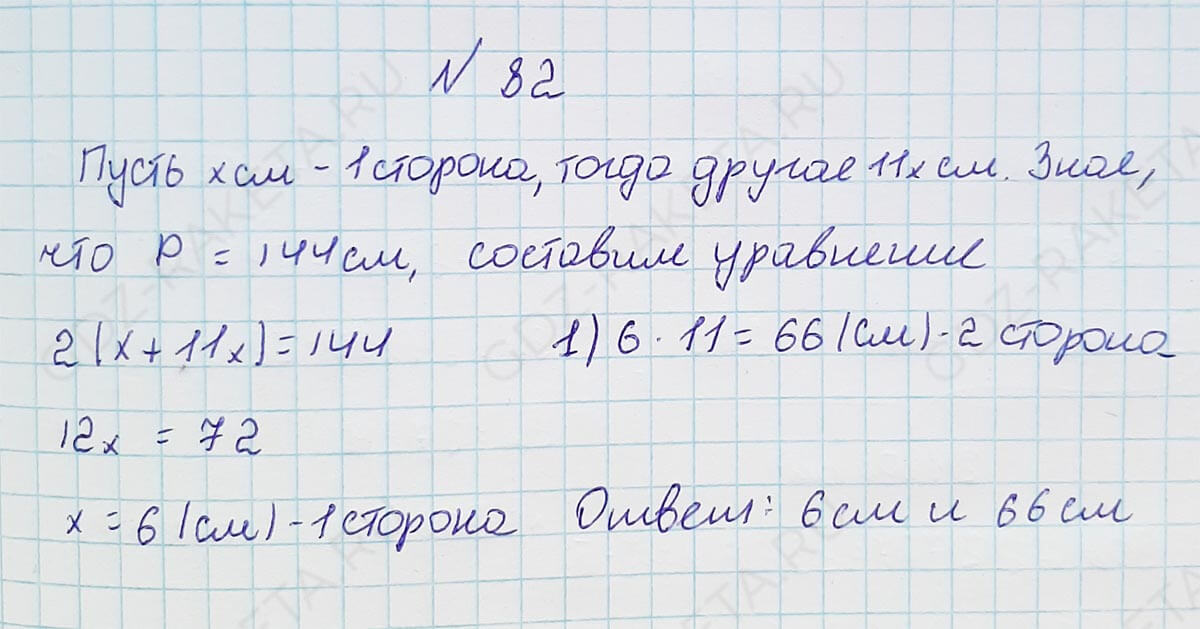 N 82
Пусть x см - 1 сторона, тогда другая 11x см. Зная,
что P = 144 см, составим уравнение
2(x + 11x) = 144
1) 6 · 11 = 66 (см) - 2 сторона
12x = 72
x = 6 (см) - 1 сторона
Ответ: 6 см и 66 см
GDZ-RAKETA.RU
GDZ-RAKETA.RU